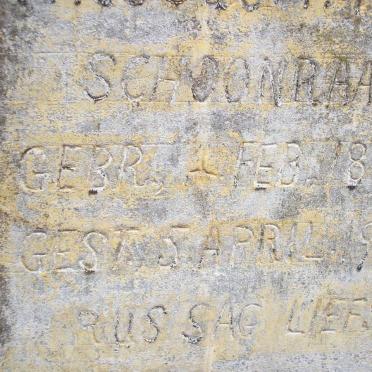 SCHOONRA
GEBR, 4 FEB. 18
GEST. 5 APRIL 19
RUS SAG LIEF